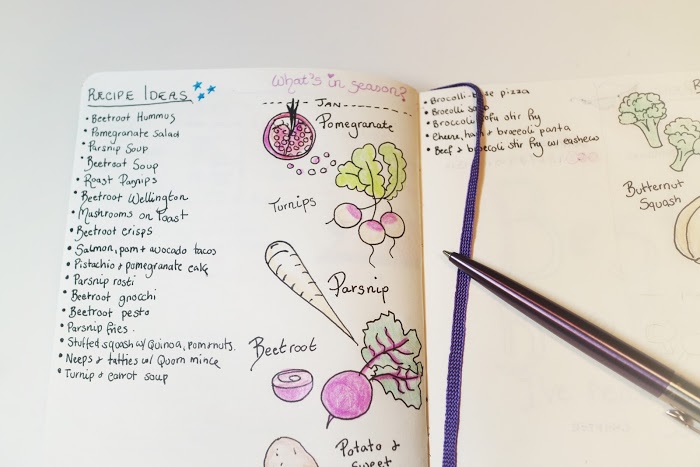 RECIPE IDEAS
• Beetroot Hummus
• Pomegranate Salad
• Parsnip Soup
• Beetroot Soup
• Roast Parnips
• Beetroot Wellington
• Mushrooms on Toast
• Beetroot crisps
• Salmon, pom + avocado tacos
• Pistachio + pomegranate cake
• Parsnip rosti
• Beetroot gnocchi
• Beetroot pesto
• Parsnip fries.
• Stuffed squash w/ Quinoa, pom+nuts.
• Neeps + tatties w/ Quorn mince
• Turnip & carrot soup
What's in season?
JAN
Pomegranate
Turnips
Parsnip
Beetroot
Potato &
Sweet
pizza
• Brocolli
• Broccoli tofu stir fry
• Cheese, ham + broccoli panta
• Beef + broccoli stir fry w/ cashews
Butternut
Squash